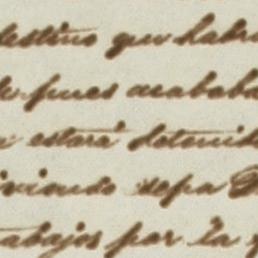 destino que habr
de pues acababa
estará detenid
viviendo sepa
trabajos por la